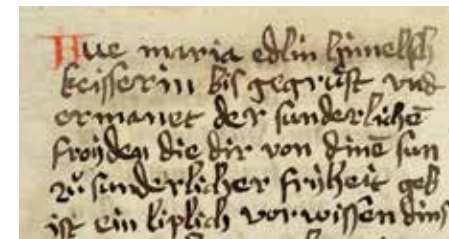 Aue maria edlin himelsch
keisserin bis gegrüst vnd
ermanet der sunderlichē
fröyden die dir von dinē sun
zů sunderlicher fryheit geb
ist ein liplich vorwissen dins